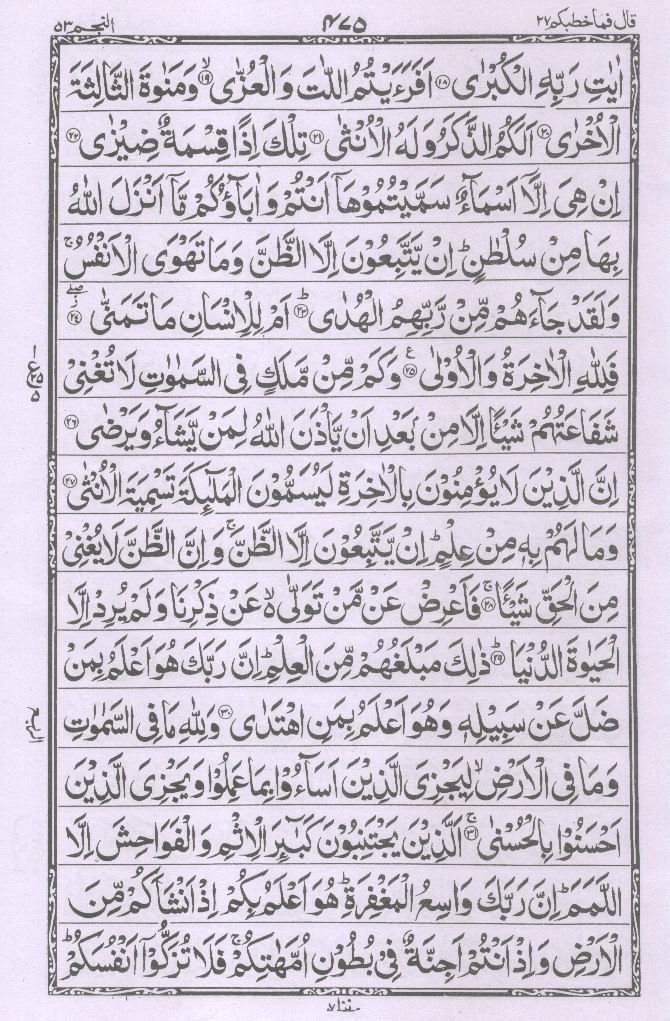 قال فما خطبكم ٢٧
٤٧٥
النجم ٥٣
اٰيٰتِ رَبِّهِ الْكُبْرٰى ۝١٨ اَفَرَءَيْتُمُ اللّٰتَ وَالْعُزّٰى ۙ۝١٩ وَمَنٰوةَ الثَّالِثَةَ
الْاُخْرٰى ۝٢٠ اَلَكُمُ الذَّكَرُ وَلَهُ الْاُنْثٰى ۝٢١ تِلْكَ اِذًا قِسْمَةٌ ضِيْزٰى ۝٢٢
اِنْ هِىَ اِلَّآ اَسْمَآءٌ سَمَّيْتُمُوْهَآ اَنْتُمْ وَاٰبَآؤُكُمْ مَّآ اَنْزَلَ اللّٰهُ
بِهَا مِنْ سُلْطٰنٍ ؕ اِنْ يَّتَّبِعُوْنَ اِلَّا الظَّنَّ وَمَا تَهْوَى الْاَنْفُسُ ۚ
وَلَقَدْ جَآءَهُمْ مِّنْ رَّبِّهِمُ الْهُدٰى ؕ۝٢٣ اَمْ لِلْاِنْسَانِ مَا تَمَنّٰى ۝٢٤
فَلِلّٰهِ الْاٰخِرَةُ وَالْاُوْلٰى ۝٢٥ وَكَمْ مِّنْ مَّلَكٍ فِى السَّمٰوٰتِ لَا تُغْنِىْ
شَفَاعَتُهُمْ شَيْئًا اِلَّا مِنْۢ بَعْدِ اَنْ يَّاْذَنَ اللّٰهُ لِمَنْ يَّشَآءُ وَيَرْضٰى ۝٢٦
اِنَّ الَّذِيْنَ لَا يُؤْمِنُوْنَ بِالْاٰخِرَةِ لَيُسَمُّوْنَ الْمَلٰٓئِكَةَ تَسْمِيَةَ الْاُنْثٰى ۝٢٧
وَمَا لَهُمْ بِهٖ مِنْ عِلْمٍ ؕ اِنْ يَّتَّبِعُوْنَ اِلَّا الظَّنَّ ۚ وَاِنَّ الظَّنَّ لَا يُغْنِىْ
مِنَ الْحَقِّ شَيْئًا ۚ۝٢٨ فَاَعْرِضْ عَنْ مَّنْ تَوَلّٰى ۙ عَنْ ذِكْرِنَا وَلَمْ يُرِدْ اِلَّا
الْحَيٰوةَ الدُّنْيَا ؕ۝٢٩ ذٰلِكَ مَبْلَغُهُمْ مِّنَ الْعِلْمِ ؕ اِنَّ رَبَّكَ هُوَ اَعْلَمُ بِمَنْ
ضَلَّ عَنْ سَبِيْلِهٖ وَهُوَ اَعْلَمُ بِمَنِ اهْتَدٰى ۝٣٠ وَلِلّٰهِ مَا فِى السَّمٰوٰتِ
وَمَا فِى الْاَرْضِ ۙ لِيَجْزِىَ الَّذِيْنَ اَسَآءُوْا بِمَا عَمِلُوْا وَيَجْزِىَ الَّذِيْنَ
اَحْسَنُوْا بِالْحُسْنٰى ۚ۝٣١ اَلَّذِيْنَ يَجْتَنِبُوْنَ كَبٰٓئِرَ الْاِثْمِ وَالْفَوَاحِشَ اِلَّا
اللَّمَمَ ؕ اِنَّ رَبَّكَ وَاسِعُ الْمَغْفِرَةِ ؕ هُوَ اَعْلَمُ بِكُمْ اِذْ اَنْشَاَكُمْ مِّنَ
الْاَرْضِ وَاِذْ اَنْتُمْ اَجِنَّةٌ فِىْ بُطُوْنِ اُمَّهٰتِكُمْ ۚ فَلَا تُزَكُّوْٓا اَنْفُسَكُمْ ؕ
منزل ٧